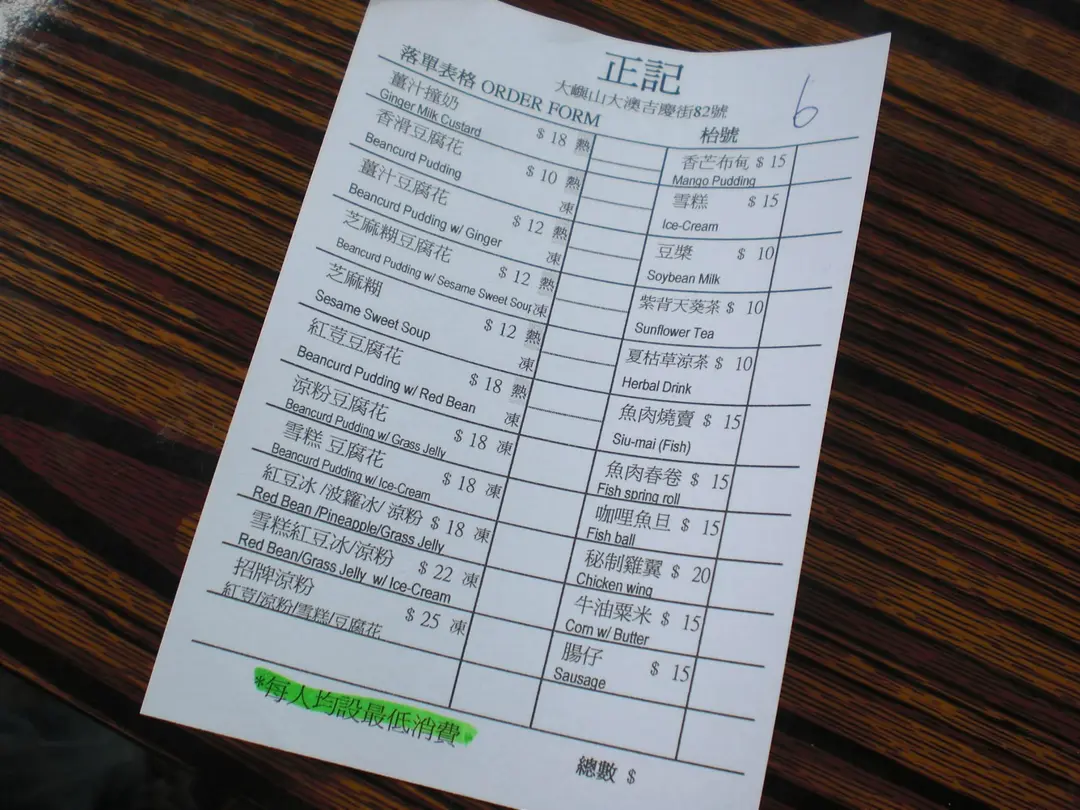 正記
大嶼山大澳吉慶街82號
落單表格 ORDER FORM
枱號
6
薑汁撞奶 $ 18 熱
Ginger Milk Custard
香滑豆腐花 $ 10 熱
Beancurd Pudding 凍
薑汁豆腐花 $ 12 熱
Beancurd Pudding w/ Ginger 凍
芝麻糊豆腐花 $ 12 熱
Beancurd Pudding w/ Sesame Sweet Soup 凍
芝麻糊 $ 12 熱
Sesame Sweet Soup 凍
紅荳豆腐花 $ 18 熱
Beancurd Pudding w/ Red Bean 凍
涼粉豆腐花 $ 18 凍
Beancurd Pudding w/ Grass Jelly
雪糕 豆腐花 $ 18 凍
Beancurd Pudding w/ Ice-Cream
紅豆冰 /波籮冰/ 涼粉 $ 18 凍
Red Bean /Pineapple/Grass Jelly
雪糕紅豆冰/涼粉 $ 22 凍
Red Bean/Grass Jelly w/ Ice-Cream
招牌涼粉 $ 25 凍
紅荳/涼粉/雪糕/豆腐花
香芒布甸 $ 15
Mango Pudding
雪糕 $ 15
Ice-Cream
豆漿 $ 10
Soybean Milk
紫背天葵茶 $ 10
Sunflower Tea
夏枯草涼茶 $ 10
Herbal Drink
魚肉燒賣 $ 15
Siu-mai (Fish)
魚肉春卷 $ 15
Fish spring roll
咖哩魚旦 $ 15
Fish ball
秘制雞翼 $ 20
Chicken wing
牛油粟米 $ 15
Corn w/ Butter
腸仔 $ 15
Sausage
*每人均設最低消費
總數 $